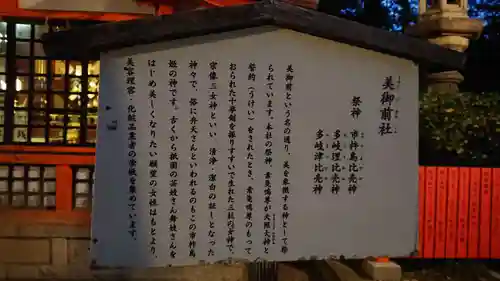 美御前社
祭神
市杵島比売神
多岐理比売神
多岐津比売神
美御前という名の通り、美を象徴する神として崇
められています。本社の祭神、素戔嗚尊が天照大神と
誓約(うけい)をされたとき、尊がもって
おられた十拳劔を振りすすいで生れた三柱の女神で、
宗像三女神といい、清浄・潔白の証しとなった
神々で、俗に弁天さんといわれるのもこの市杵島
姫の神です。古くから祇園の芸妓さん舞妓さんを
はじめ美しくなりたい願望の女性はもとより、
美容理容・化粧品業者の崇敬を集めています。